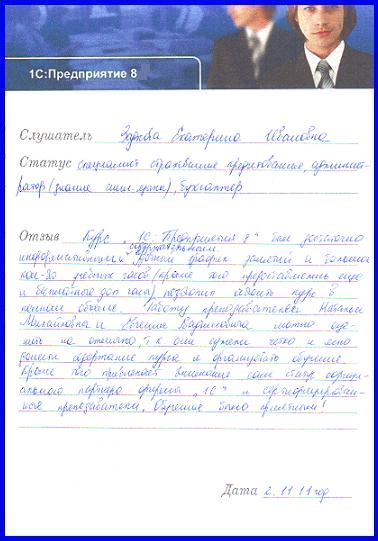 1С:Предприятие 8
Слушатель Екатерина Ивановна
Статус специалист страхование, кредитование, админист-
ратор (знание англ. языка), бухгалтер
Отзыв Курс "1С-Предприятия 8" был достаточно
информативным и содержательным. График занятий и большое
кол-во учебных часов (кроме того предоставлялись еще
и бесплатные доп. часы) позволил освоить курс в
полном объеме. Работу преподавателей Натальи
Михайловны и Евгения Вадимовича можно оце-
нить на отлично, т.к. они сумели четко и ясно
донести содержание курса и организовать обучение.
Кроме того привлекает внимание сам статус официа-
ального партнера фирмы "1С" и сертифицирован-
ные преподаватели. Обучение было приятным!
Дата 2.11.11 год